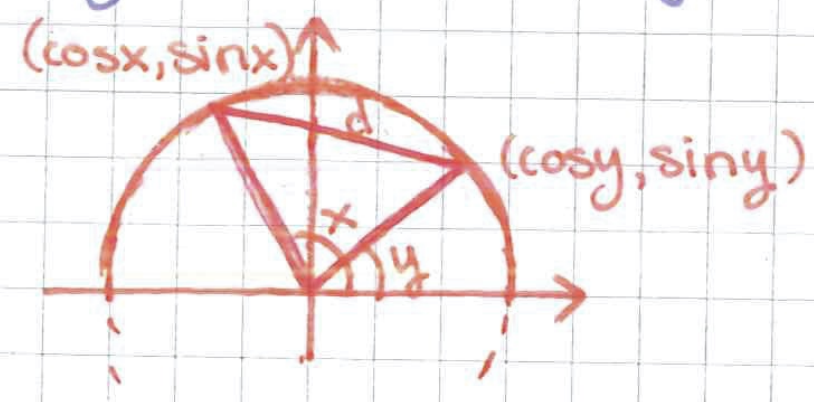 (cosx,sinx)
d
(cosy,siny)
x
y